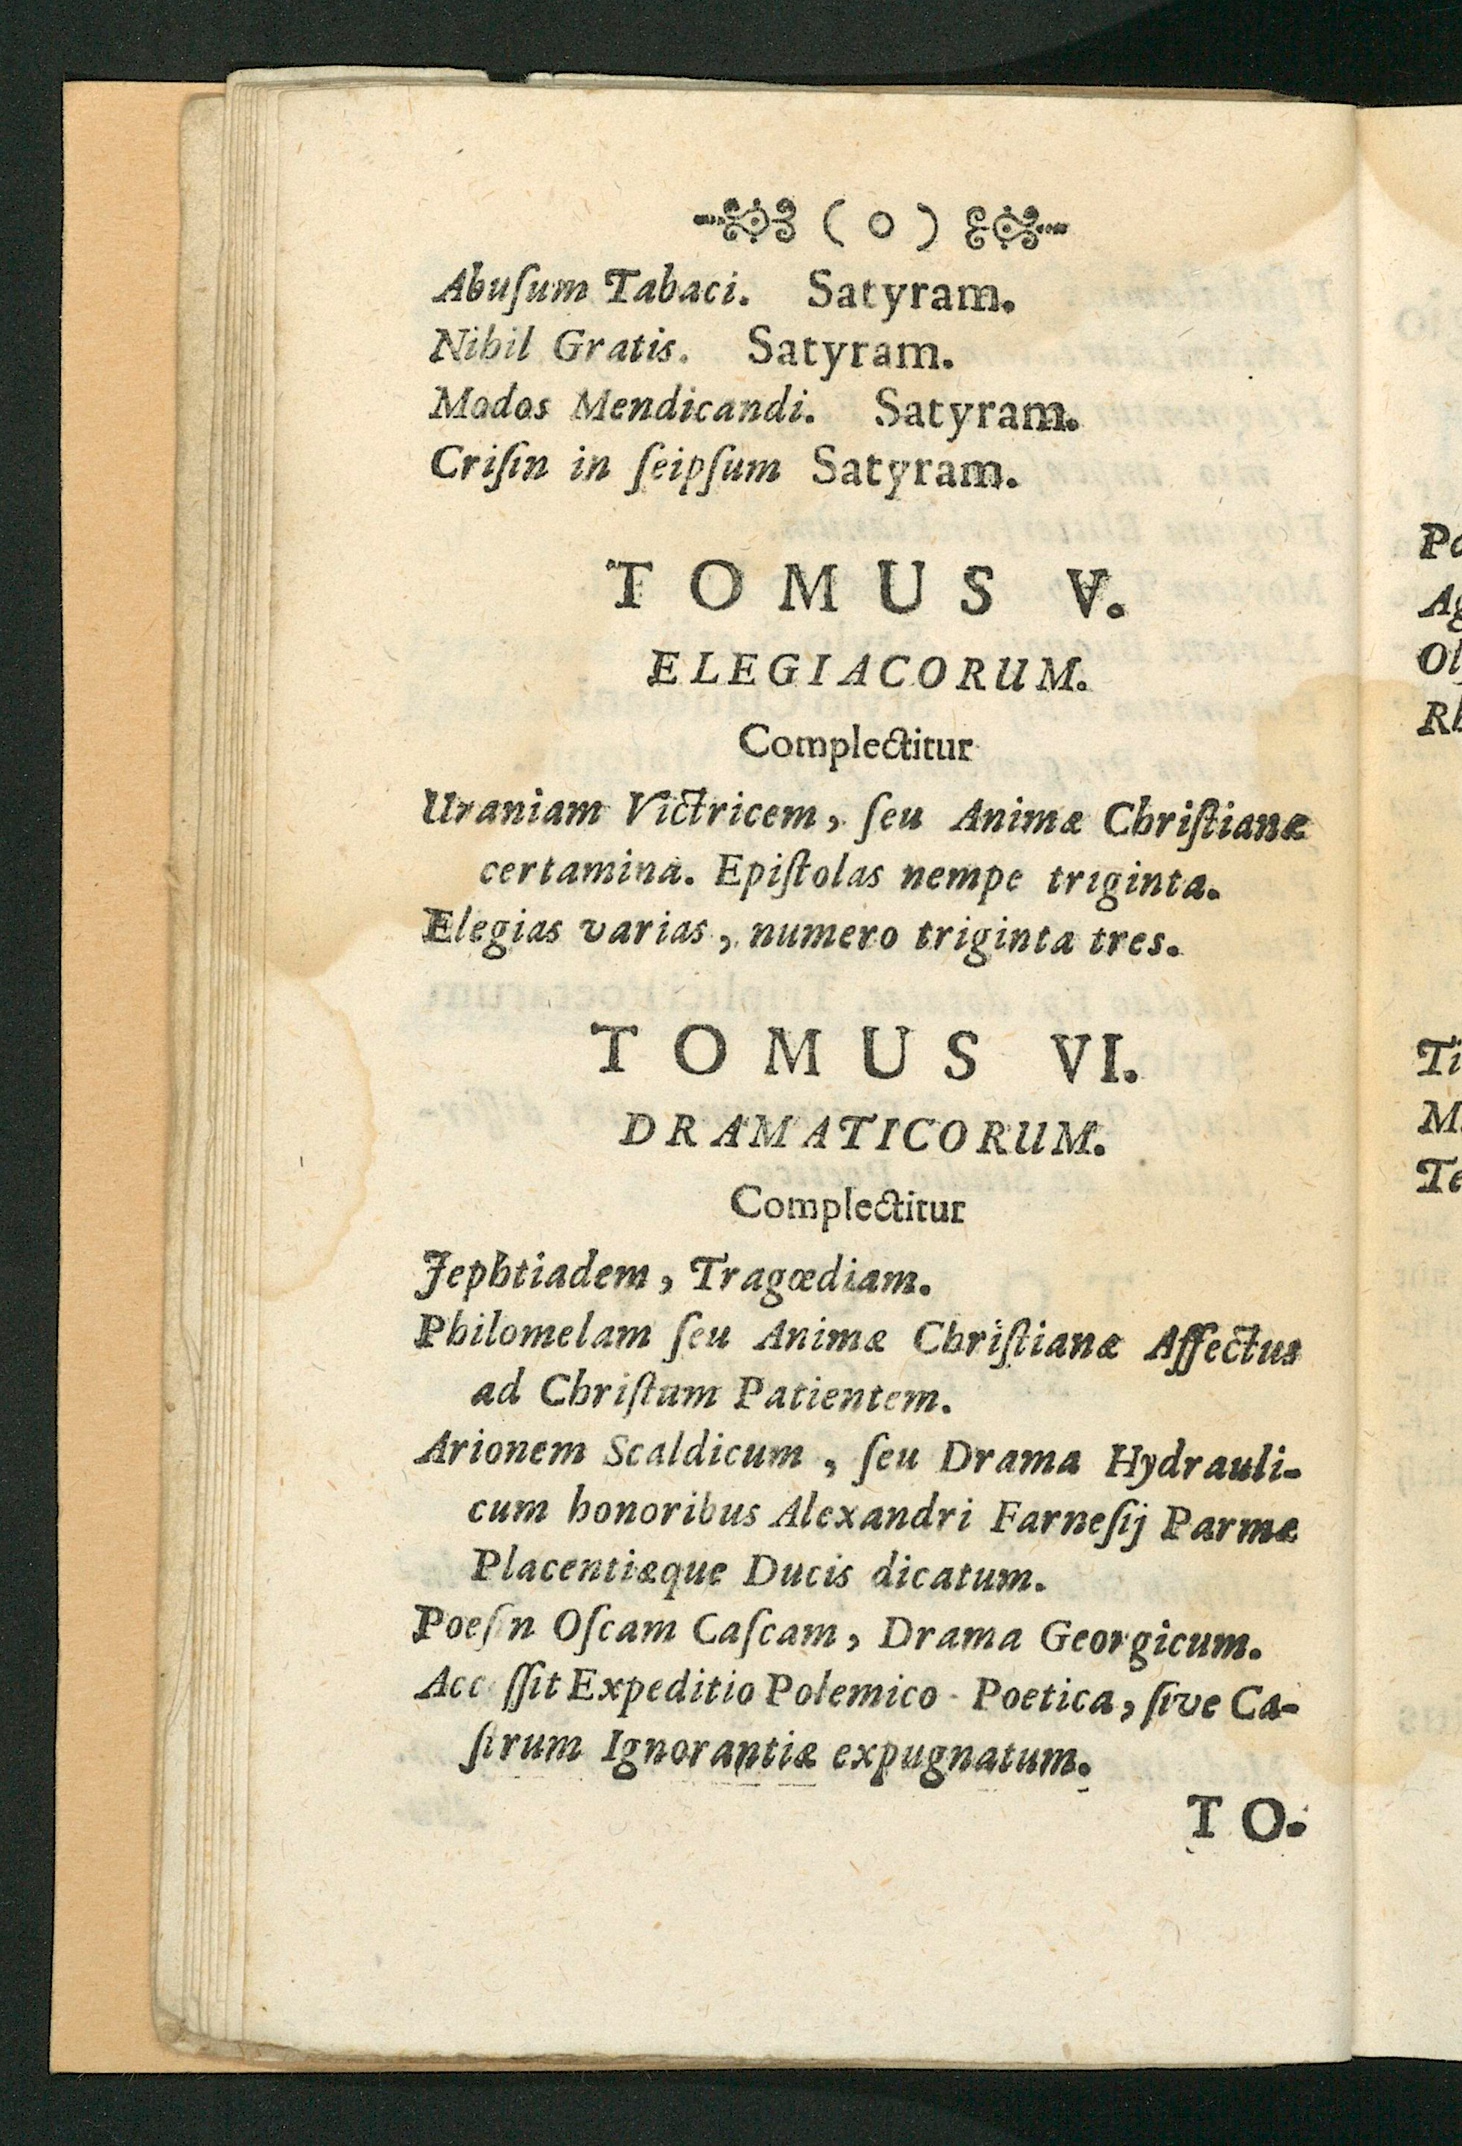 ( o )
Abuſum Tabaci. Satyram.
Nihil Gratis. Satyram.
Modos Mendicandi. Satyram.
Criſin in ſeipſum Satyram.
TOMUS V.
ELEGIACORUM.
Complectitur
Uraniam Victricem, ſeu Animæ Chriſtianæ
certamina. Epiſtolas nempe triginta.
Elegias varias, numero triginta tres.
TOMUS VI.
DRAMATICORUM.
Complectitur
Jephtiadem, Tragœdiam.
Philomelam ſeu Animæ Chriſtianæ Affectus
ad Chriſtum Patientem.
Arionem Scaldicum, ſeu Drama Hydrauli-
cum honoribus Alexandri Farneſij Parmæ
Placentiæque Ducis dicatum.
Poeſin Oſcam Caſcam, Drama Georgicum.
Acceſſit Expeditio Polemico-Poetica, ſive Ca-
ſtrum Ignorantiæ expugnatum.
TO-
Ti
M
Te